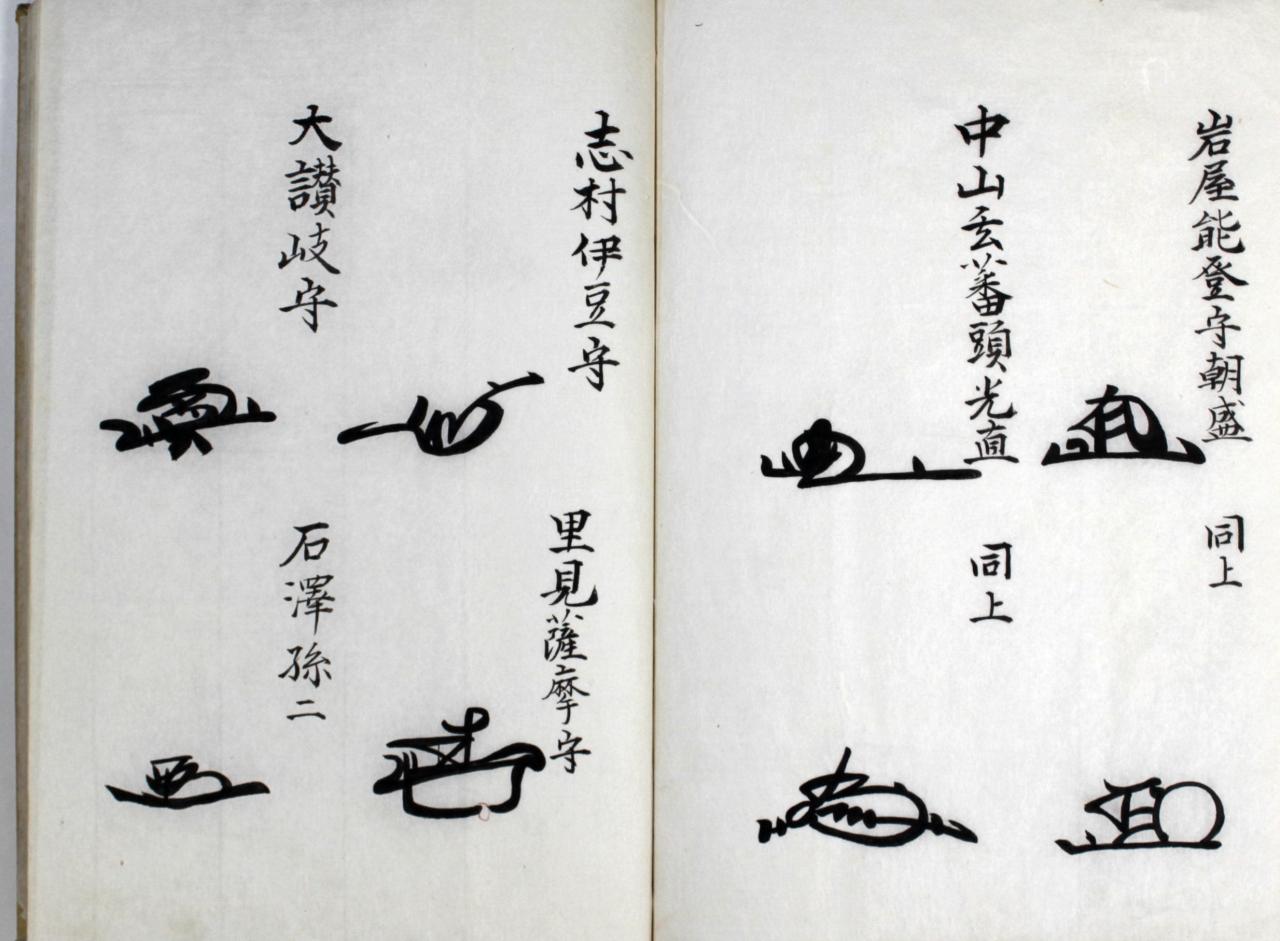 岩屋能登守朝盛
同上
中山玄蕃頭光直
同上
志村伊豆守
里見薩摩守
大讃岐守
石澤孫二